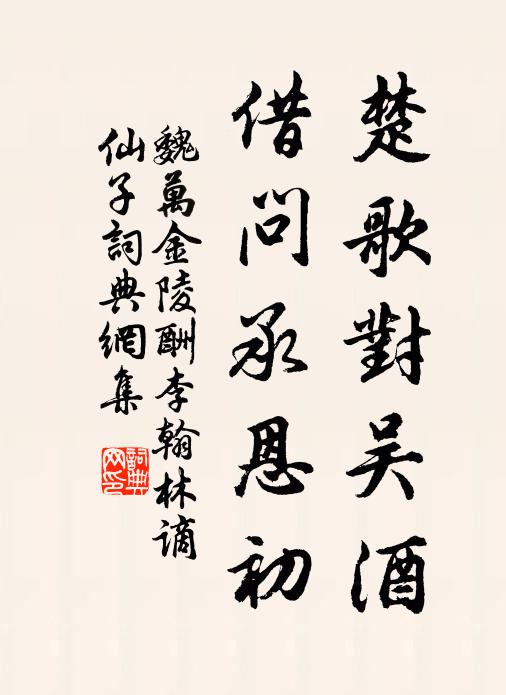 楚歌對吴酒
借問承恩初
魏萬金陵酬李翰林謫
仙子詞典網集
詞典网印